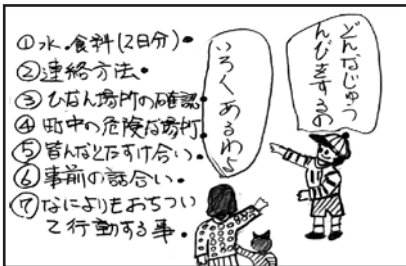 ①水.食料(2日分)•
②連絡方法•
③ひなん場所の確認•
④町中の危険な場所•
⑤皆んなとたすけ合い•
⑥事前の話合い•
⑦なによりもおちつい
て行動する事•
どんなじゅう
んびをするの
いろくあるわよ